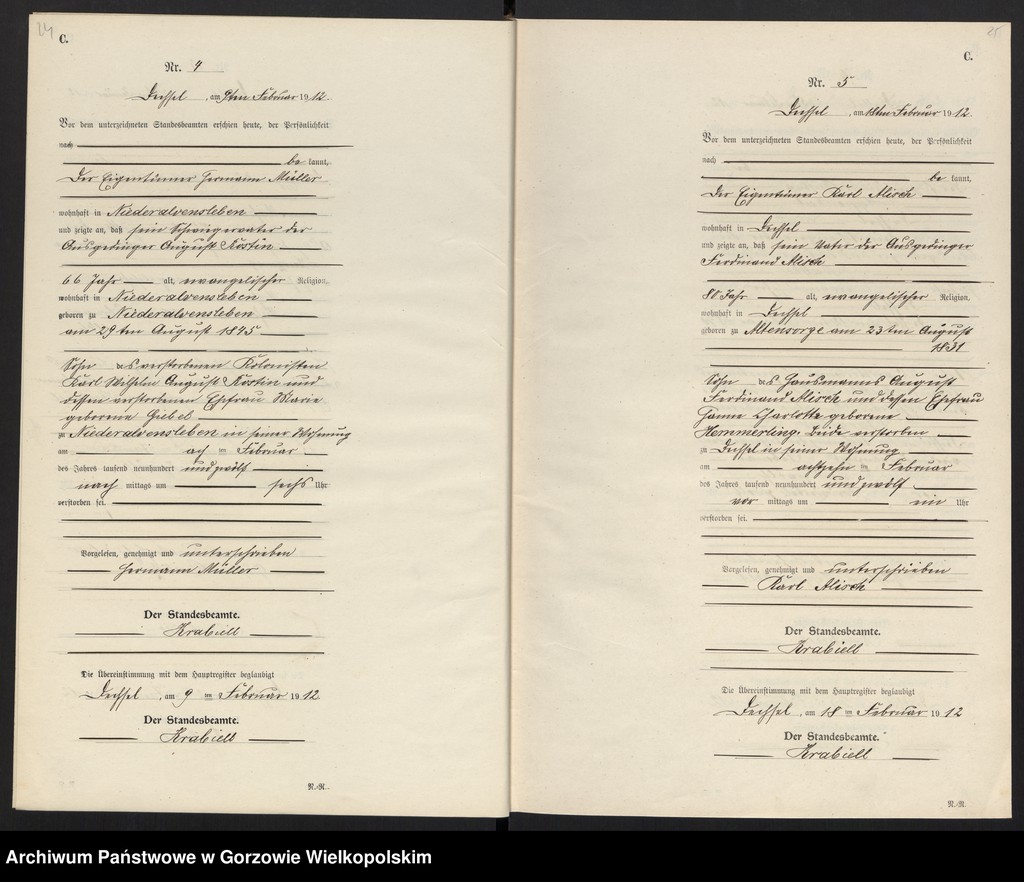 24
C.
Nr. 4
Dechsel, am 9ten Februar 1912.
Vor dem unterzeichneten Standesbeamten erschien heute, der Persönlichkeit
nach
be kannt,
Der Eigentümer Hermann Müller
wohnhaft in Niederalvensleben
und zeigte an, daß sein Schwiegervater der
Ausgedinger August Köstin
66 Jahr alt, evangelischer Religion,
wohnhaft in Niederalvensleben
geboren zu Niederalvensleben
am 29ten August 1845
Sohn des verstorbenen Kolonisten
Karl Wilhelm August Köstin und
dessen verstorbenen Ehefrau Marie
geborene Giebel
zu Niederalvensleben in seiner Wohnung
am acht ten Februar
des Jahres tausend neunhundert und zwölf
nach mittags um sechs Uhr
verstorben sei.
Vorgelesen, genehmigt und unterschrieben
Hermann Müller
Der Standesbeamte.
Krabiell
Die Übereinstimmung mit dem Hauptregister beglaubigt
Dechsel, am 9 ten Februar 1912.
Der Standesbeamte.
Krabiell
N.-R.
25
C.
Nr. 5
Dechsel, am 18ten Februar 1912
Vor dem unterzeichneten Standesbeamten erschien heute, der Persönlichkeit
nach
be kannt,
Der Eigentümer Karl Mirch
wohnhaft in Dechsel
und zeigte an, daß sein Vater der Ausgedinger
Ferdinand Mirch
80 Jahr alt, evangelischer Religion,
wohnhaft in Dechsel
geboren zu Altensorge am 23ten August
1831
Sohn des Hausmanns August
Ferdinand Mirch und dessen Ehefrau
Hanne Charlotte geborene
Hemmerling, beide verstorben
zu Dechsel in seiner Wohnung
am achtzehn ten Februar
des Jahres tausend neunhundert und zwölf
vor mittags um ein Uhr
verstorben sei.
Vorgelesen, genehmigt und unterschrieben
Karl Mirch
Der Standesbeamte.
Krabiell
Die Übereinstimmung mit dem Hauptregister beglaubigt
Dechsel, am 18 ten Februar 1912
Der Standesbeamte.
Krabiell
N.-R.
Archiwum Państwowe w Gorzowie Wielkopolskim